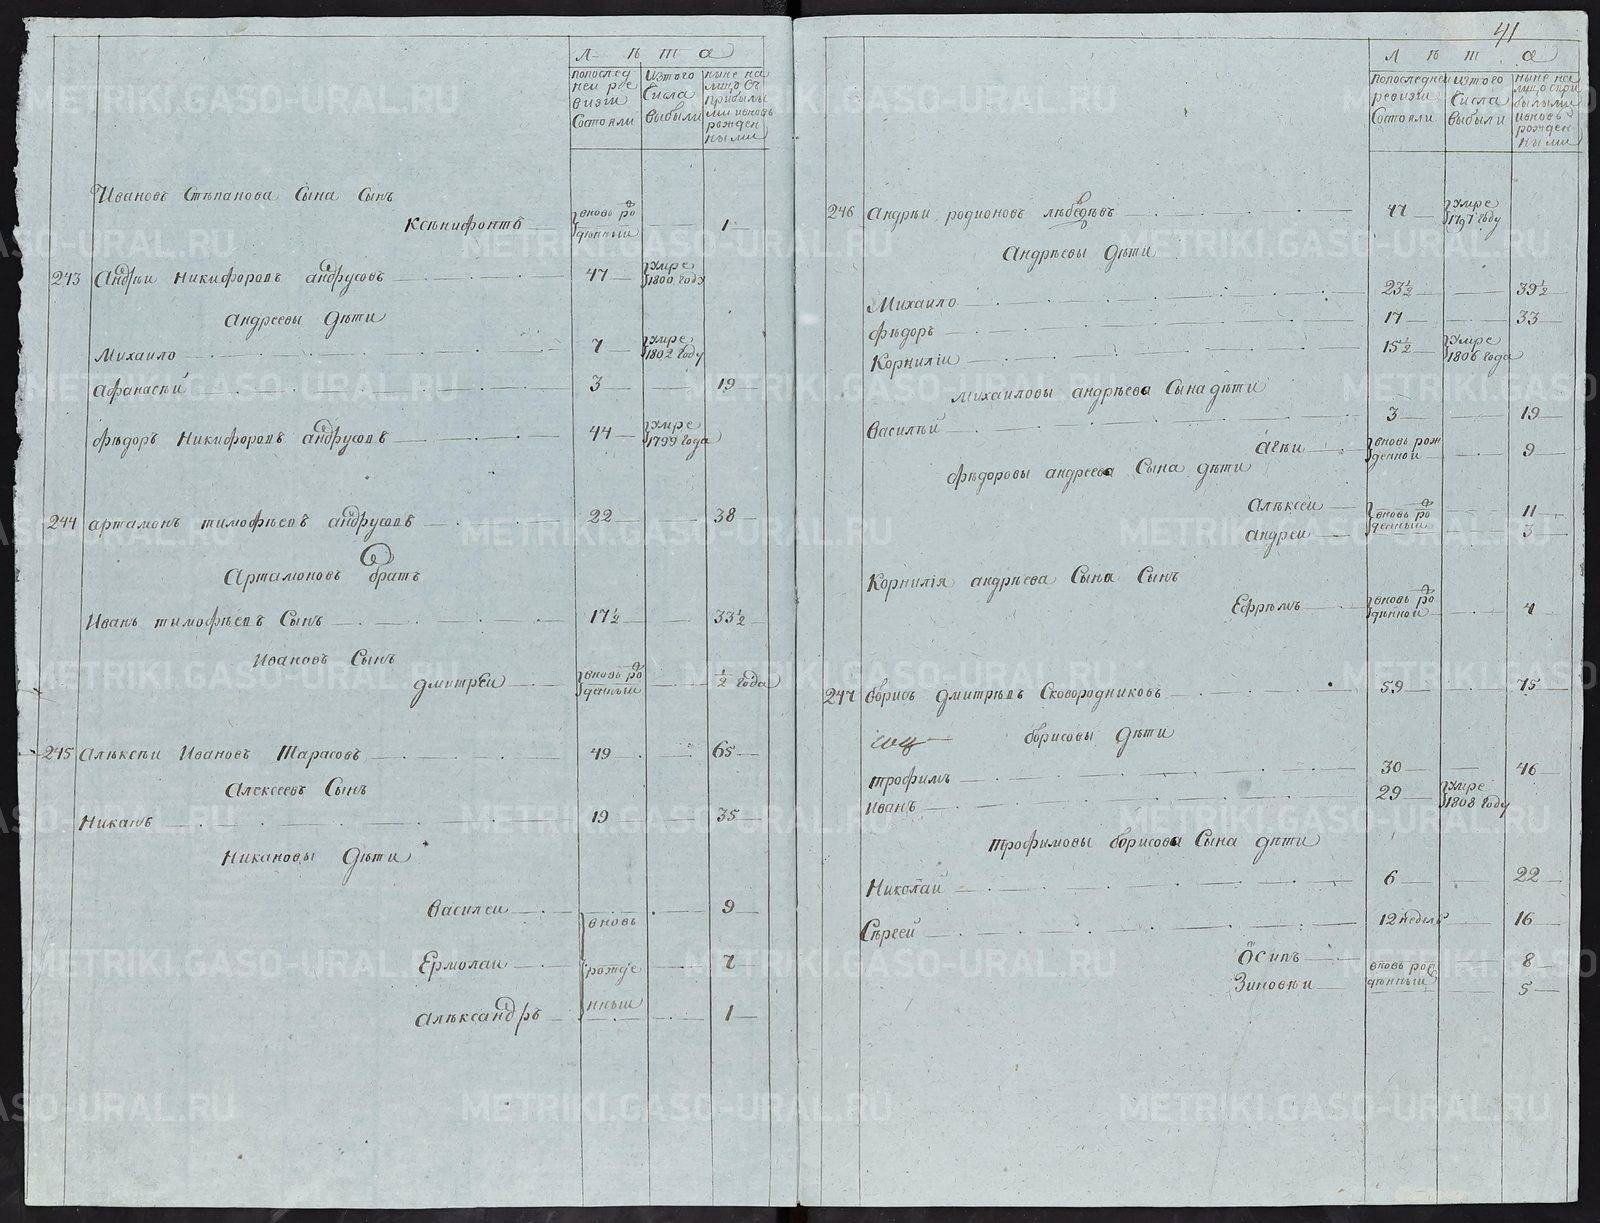 Лѣта
попослед
ней ре
визіи
Состояли
Изтого
Числа
выбыли
ныне на
лицо съ
прибылы
ми ивновь
рожден
ными
Ивановъ Степанова Сына Сынъ
Ксѣнифонтъ вновь ро 1
жденный
243 Андрѣи Никифоровъ андрусовъ 47 умре
1800 годѫ
андреевы Дѣти
Михаило 7 умре
1802 году
Афанасѣй 3 19
Фѣдоръ Никифоровъ андрусовъ 44 умре
1799 года
244 артамонъ тимофѣевъ андрусовъ 22 38
Артамоновъ братъ
Иванъ тимофѣевъ Сынъ 17½ 33½
Ивановъ Сынъ
дмитреи вновь ро ½ года
жденный
245 Алѣксѣи Ивановъ Тарасовъ 49 65
Алексеевъ Сынъ
Никанъ 19 35
Никановы Дѣти
Василеи вновь 9
Ермолаи рожде 7
Алѣксандръ нныи 1
41
Лѣта
попоследнеи
ревизіи
Состояли
изтого
Числа
выбыли
ныне на
лицоспри
былыми
ивновь
рожден
ными
246 андрѣи родионовъ лѣбедѣвъ 47 умре
1797 году
Андрѣевы дѣти
Михаило 23½ 39½
фѣдоръ 17 33
Корниліи 15½ умре
1806 года
Михаиловы андрѣева Сына дѣти
Василѣй 3 19
Агѣи вновь рож 9
денной
фѣдоровы андреева Сына дѣти
Алѣксеи вновь ро 11
жденный
андреи 3
Корнилія андрѣева Сына Сынъ
Ефрѣмъ вновь ро 4
жденной
247 борисъ дмитрѣвъ Сковородниковъ 59 75
борисовы Дѣти
трофимъ 30 46
Иванъ 29 умре
1808 году
трофимовы борисова Сына дѣти
Николай 6 22
Сѣргей 12 недель 16
Осипъ вновь рож 8
Зиновѣи дѣнный 5